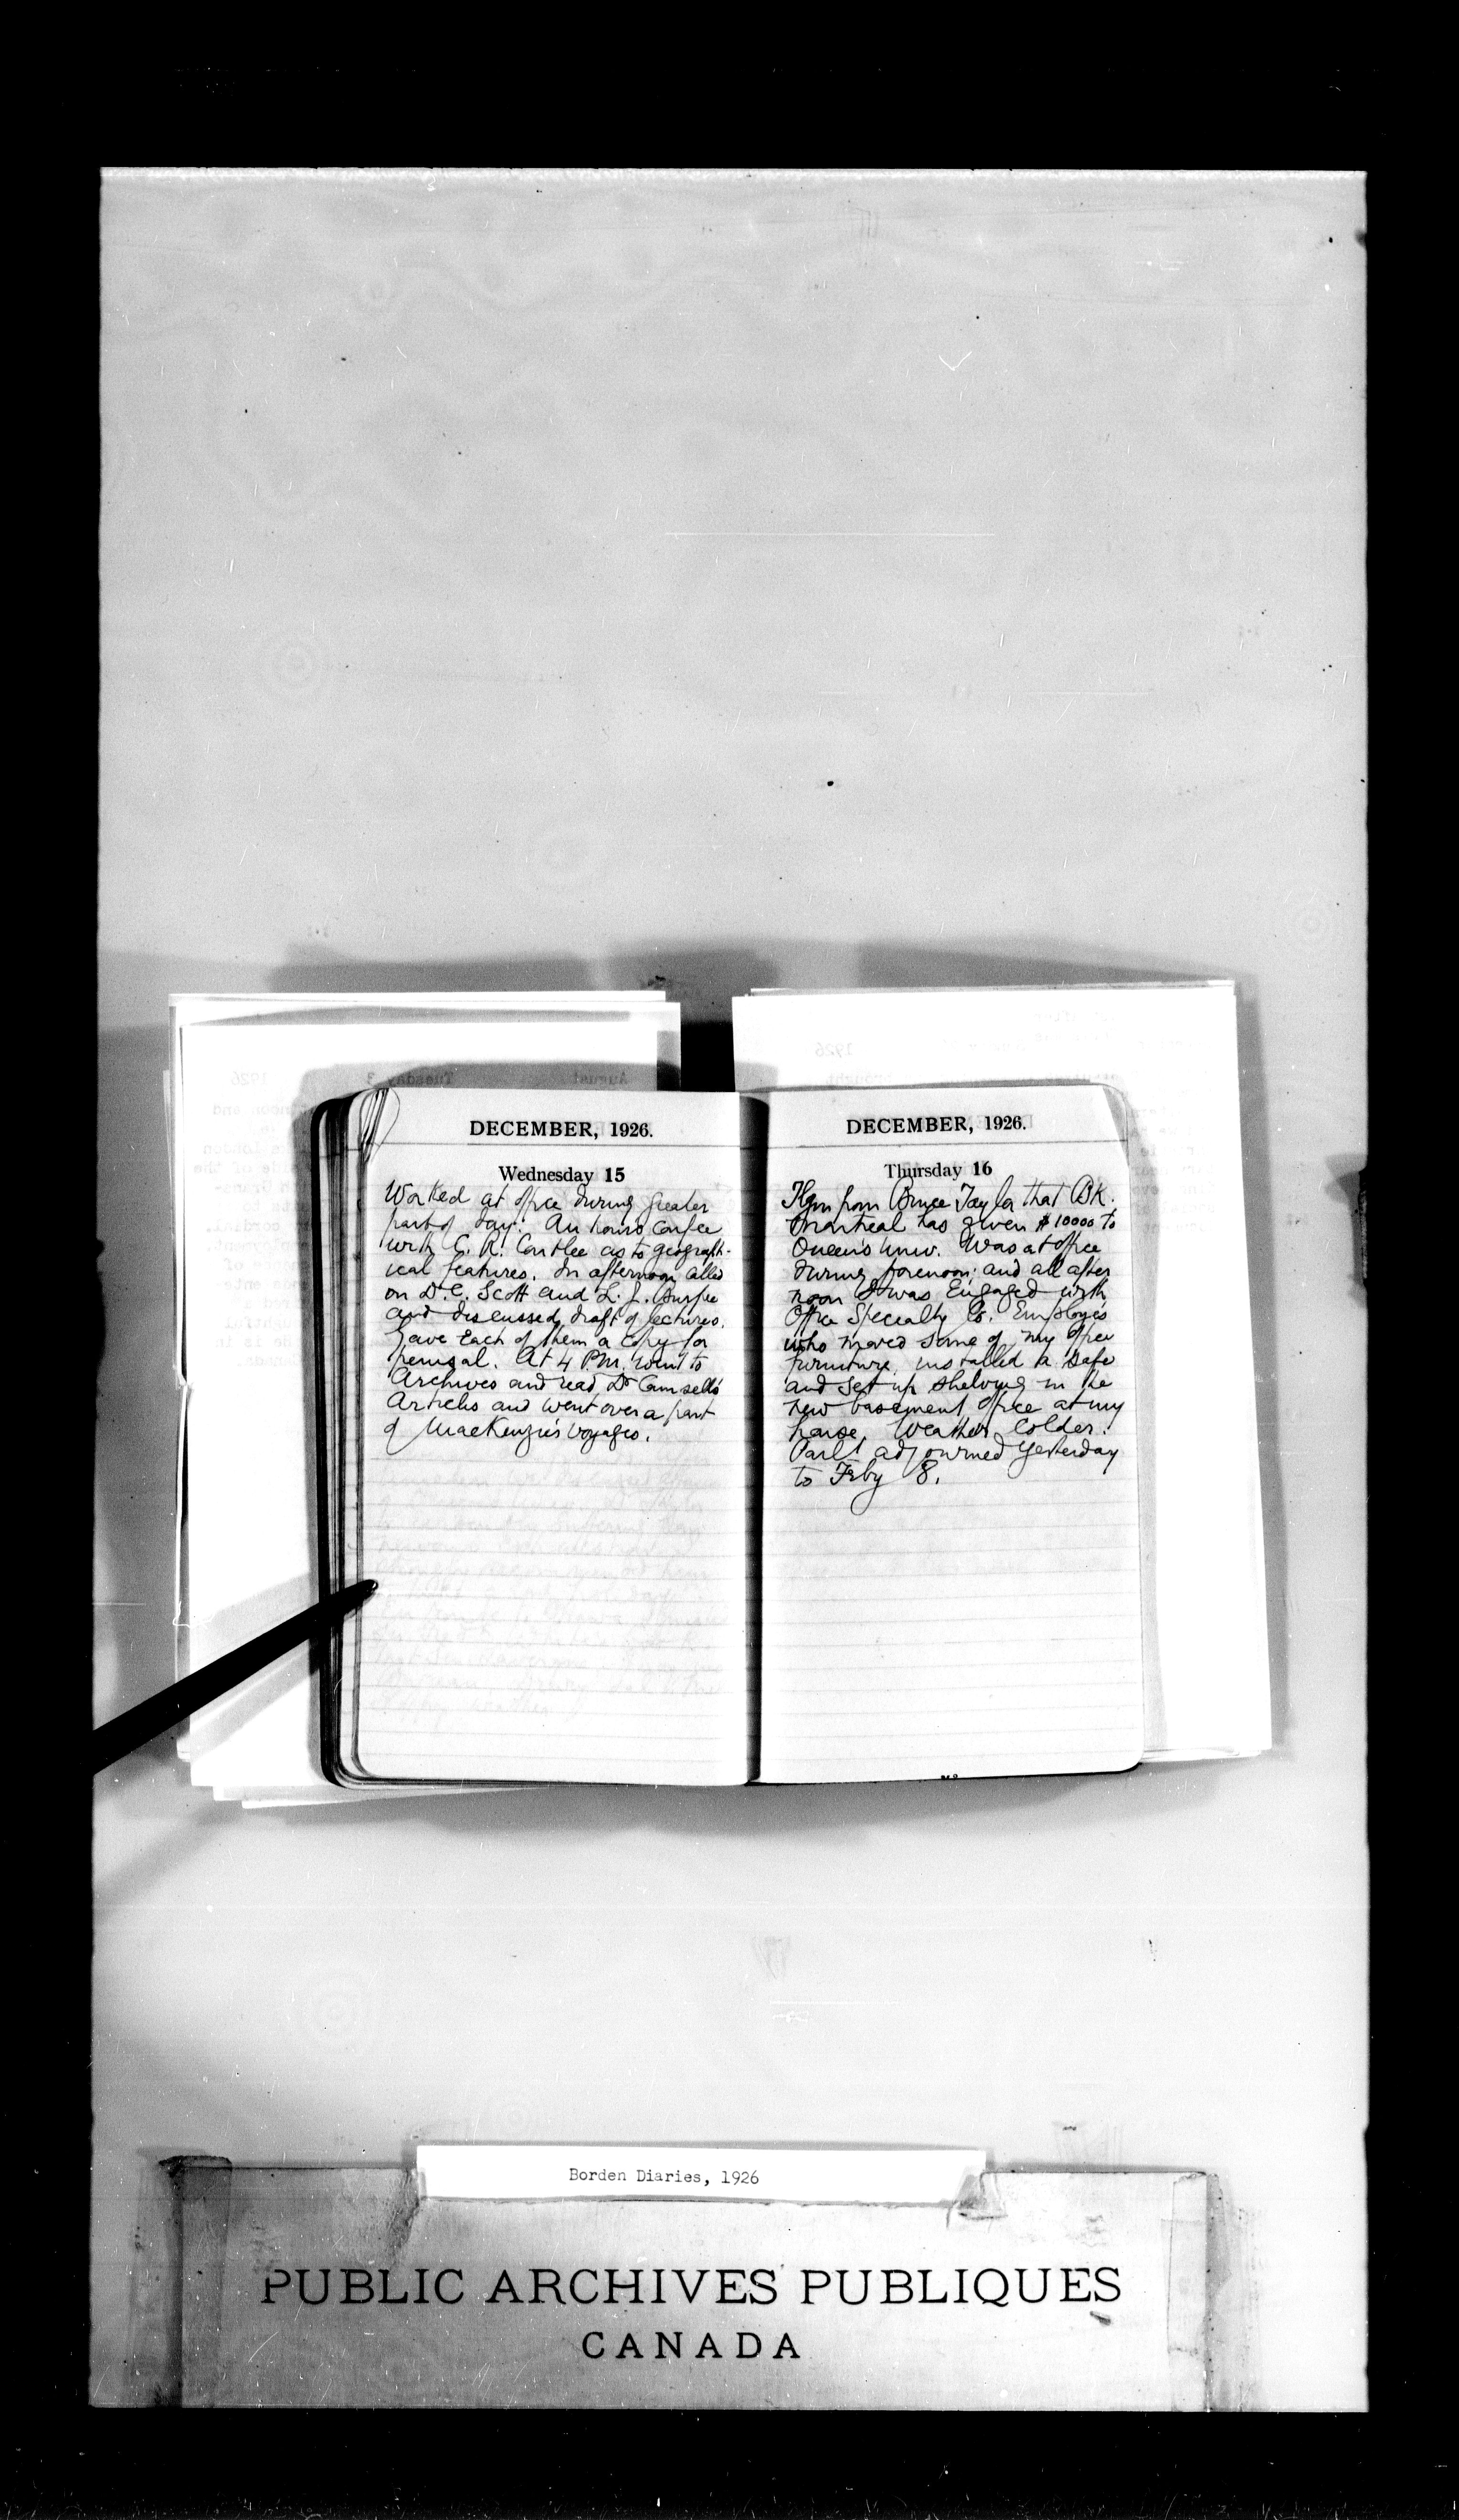 DECEMBER, 1926.
Wednesday 15
Worked at office during greater
part of day. An hours confce
with C. R. Coutlee as to geograph-
ical features. In afternoon called
on D. C. Scott and L. J. Burpee
and discussed draft of lectures.
Gave each of them a copy for
perusal. At 4 P.M. went to
Archives and read Dr Camsell's
Articles and went over a part
of MacKenzie's voyages.
DECEMBER, 1926.
Thursday 16
Tlgm from Bruce Taylor that Bk.
Montreal has given $10000 to
Queen's Univ. Was at office
during forenoon; and all after
noon I was engaged with
Office Specialty Co. Employés
who moved some of my office
furniture, installed a safe
and set up shelving in the
new basement office at my
house. Weather colder.
Parlt adjourned yesterday
to Feby 8.
Borden Diaries, 1926
PUBLIC ARCHIVES PUBLIQUES
CANADA